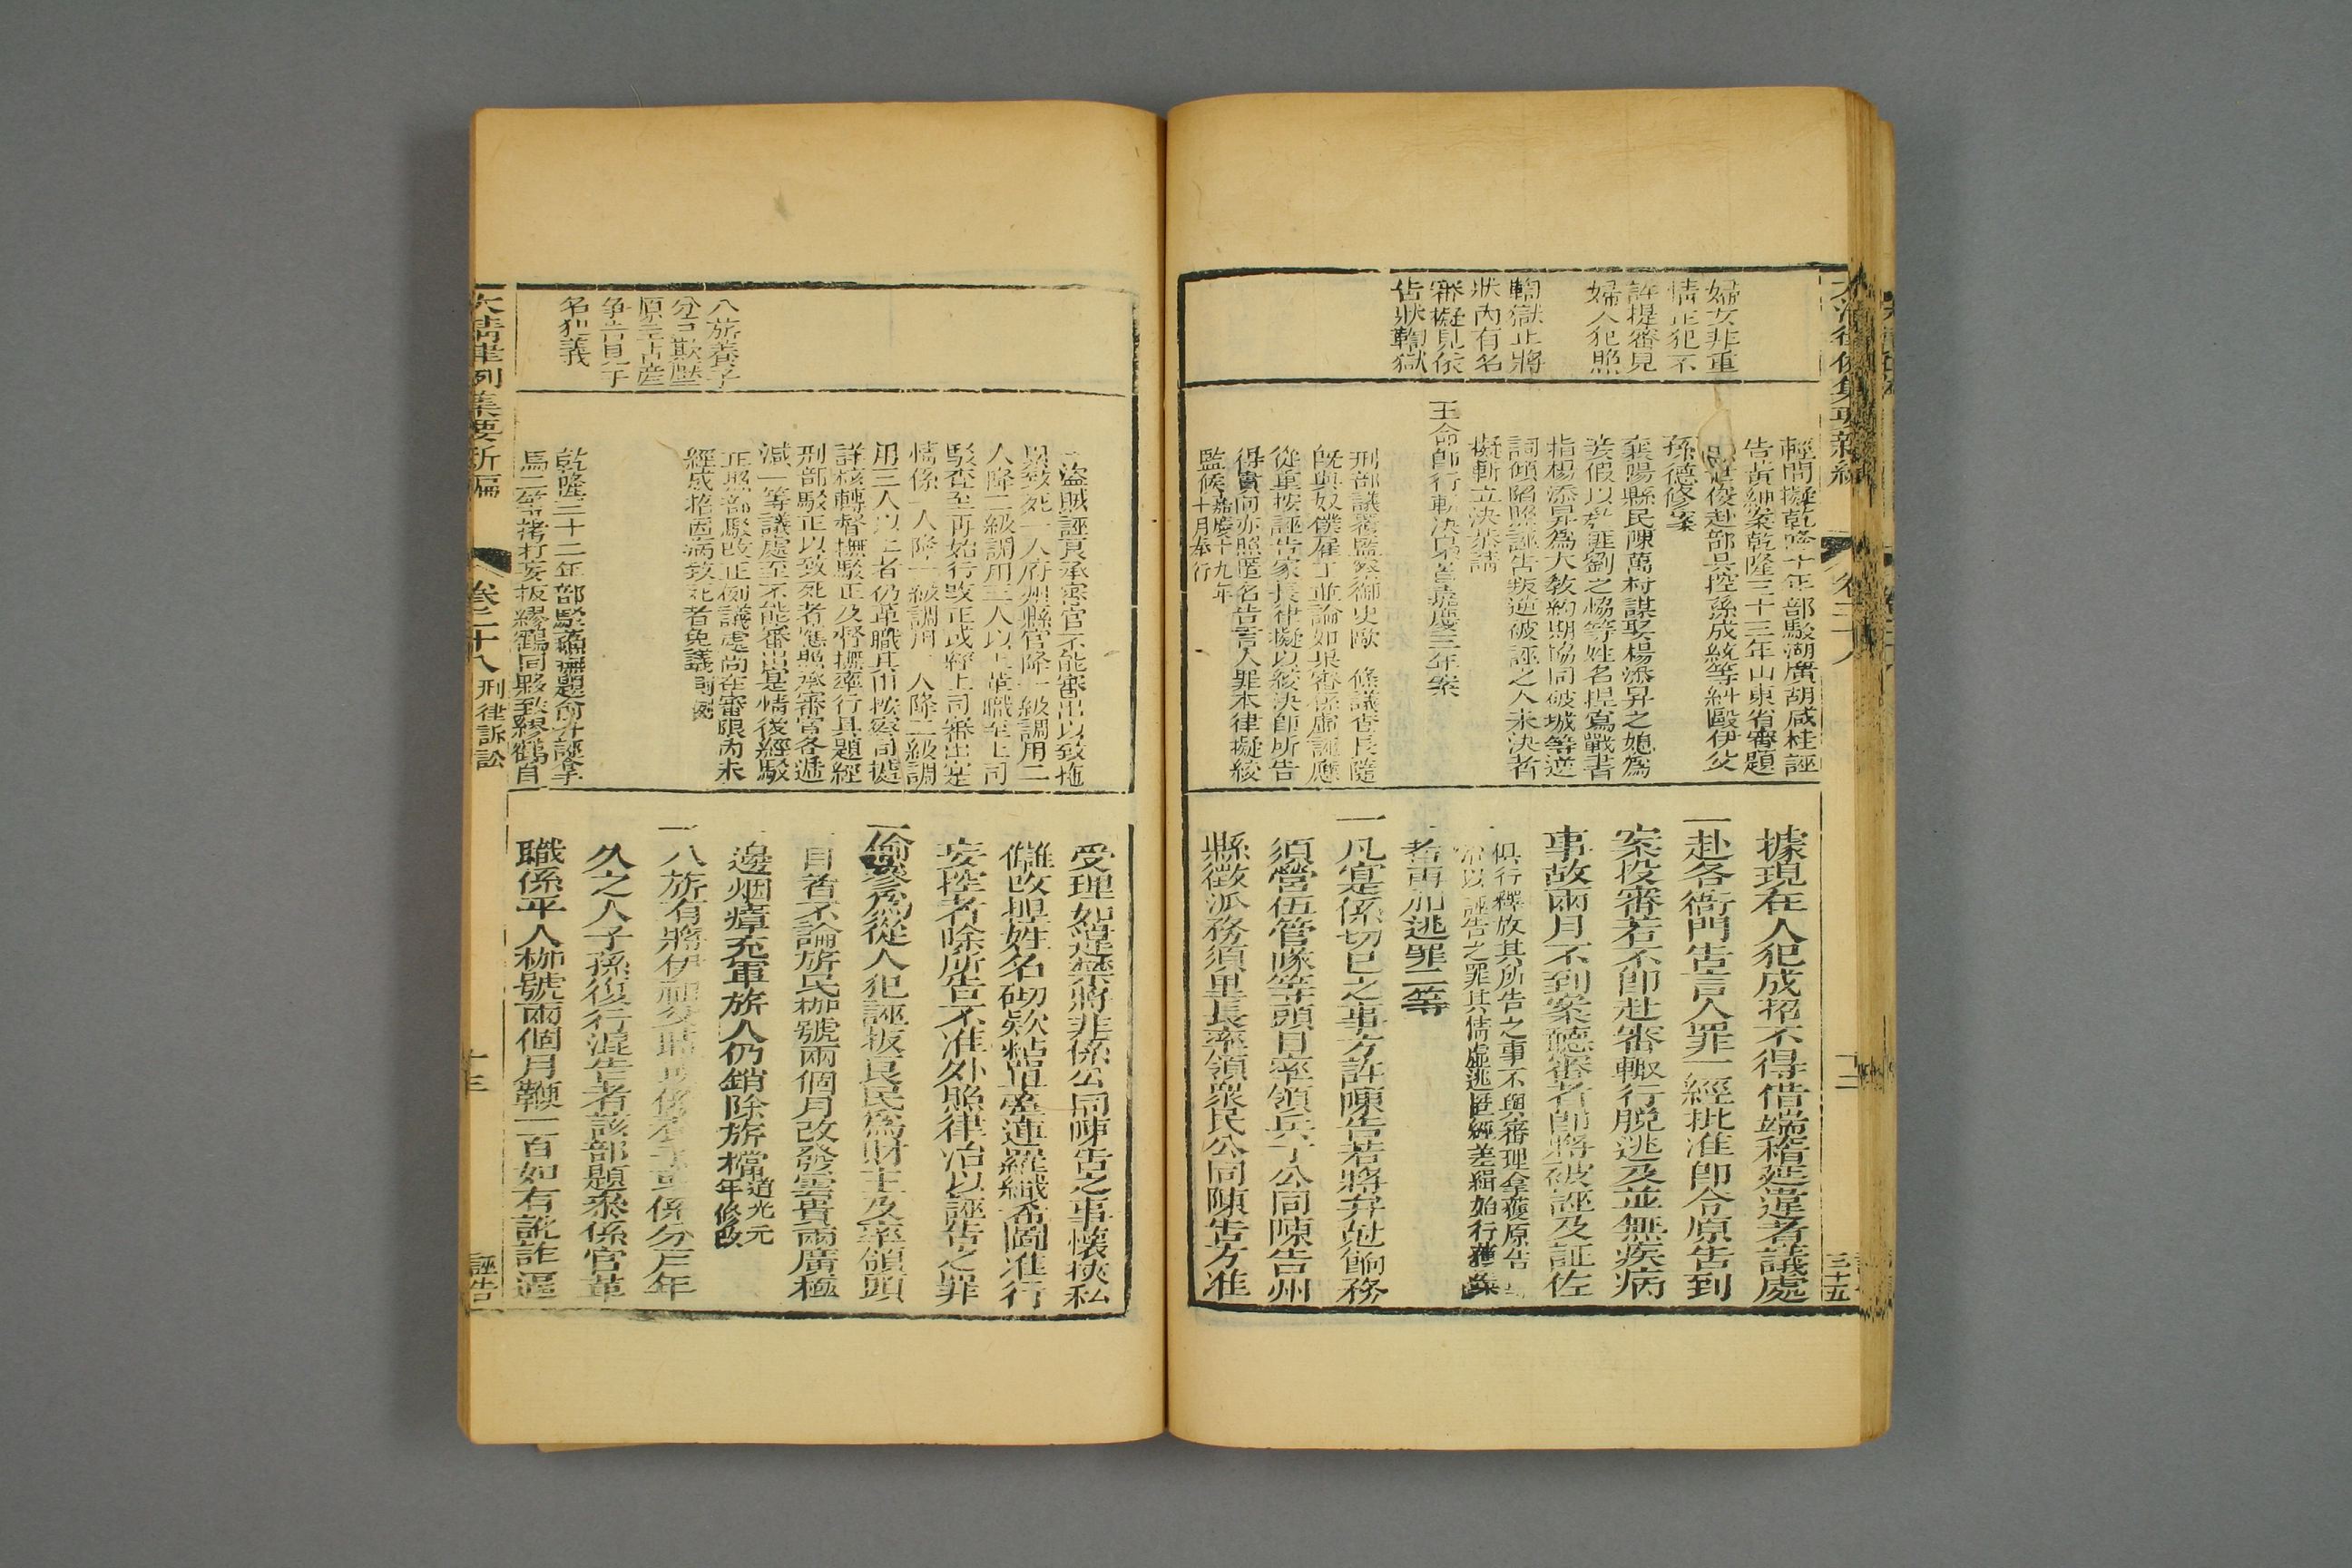 婦女非重
情正犯不
許提審見
婦人犯照
鞫獄止將
狀內有名
審擬見依
告狀鞫獄
輕問擬乾隆十年部駁湖廣胡咸桂誣
告黃紳案乾隆三十三年山東省審題
俊赴部具控孫成統等糾毆伊父
孫德修案
襄陽縣民陳萬村謀娶楊添昇之媳為
妾假以孽匪劉之協等姓名捏寫戰書
指楊添昇為大教約期協同破城等逆
詞傾陷照誣告叛逆被誣之人未決者
擬斬立決恭請
王命即行斬決嘉慶三年案
刑部議覆監察御史歐 條議查長隨
旣與奴僕雇工並論如果審係虛誣應
從重按誣告家長律擬以絞決即所告
得實向亦照匿名告言人罪本律擬絞
監候嘉慶十九年十月奉行
據現在人犯成招不得借端稽延違者議處
一赴各衙門告言人罪一經批准即令原告到
案投審若不即赴審輙行脫逃及並無疾病
事故兩月不到案聽審者即將被誣及証佐
俱行釋放其所告之事不與審理拿獲原告
治以誣告之罪其情虛逃匿經差緝始行獲案
者再加逃罪二等
一凡實係切己之事方許陳告若將弁尅餉務
須營伍管隊等頭目率領兵丁公同陳告州
縣徵派務須里長率領眾民公同陳告方准
八旂養子
分戶欺壓
原主占產
爭告見干
名犯義
一盜賊誣良承審官不能審出以致拖
累致死一人府州縣官降一級調用二
人降二級調用三人以上革職至上司
駁查至再始行改正或經上司審出實
情係一人降一級調用二人降二級調
用三人以上者仍革職其由按察司據
詳核轉督撫駁正及督撫率行具題經
刑部駁正以致死者應照承審官各遞
減一等議處至不能審出實情後經駁
正照部駁改正例議處尚在審限內未
經成招因病致死者免議同例
乾隆二十二年部駁蘇撫題俞才誣拿
馬二等拷打妄扳繆鶴同夥致繆鶴自
受理如違禁將非係公同陳告之事懷挾私
讎改揑姓名砌欵粘单牽連羅織希圖准行
妄控者除所告不准外照律治以誣告之罪
一偷參為從人犯誣扳良民為財主及率領頭
目者不論旂民枷號兩個月改發雲貴兩廣極
邊烟瘴充軍旂人仍銷除旂檔道光元年修改
一八旂有將伊祖父時 係養子或係分戶年
久之人子孫復行混告者該部題叅係官革
職係平人枷號兩個月鞭一百如有訛詐逞
大清律例集要新編
卷二十八 刑律訴訟
誣告